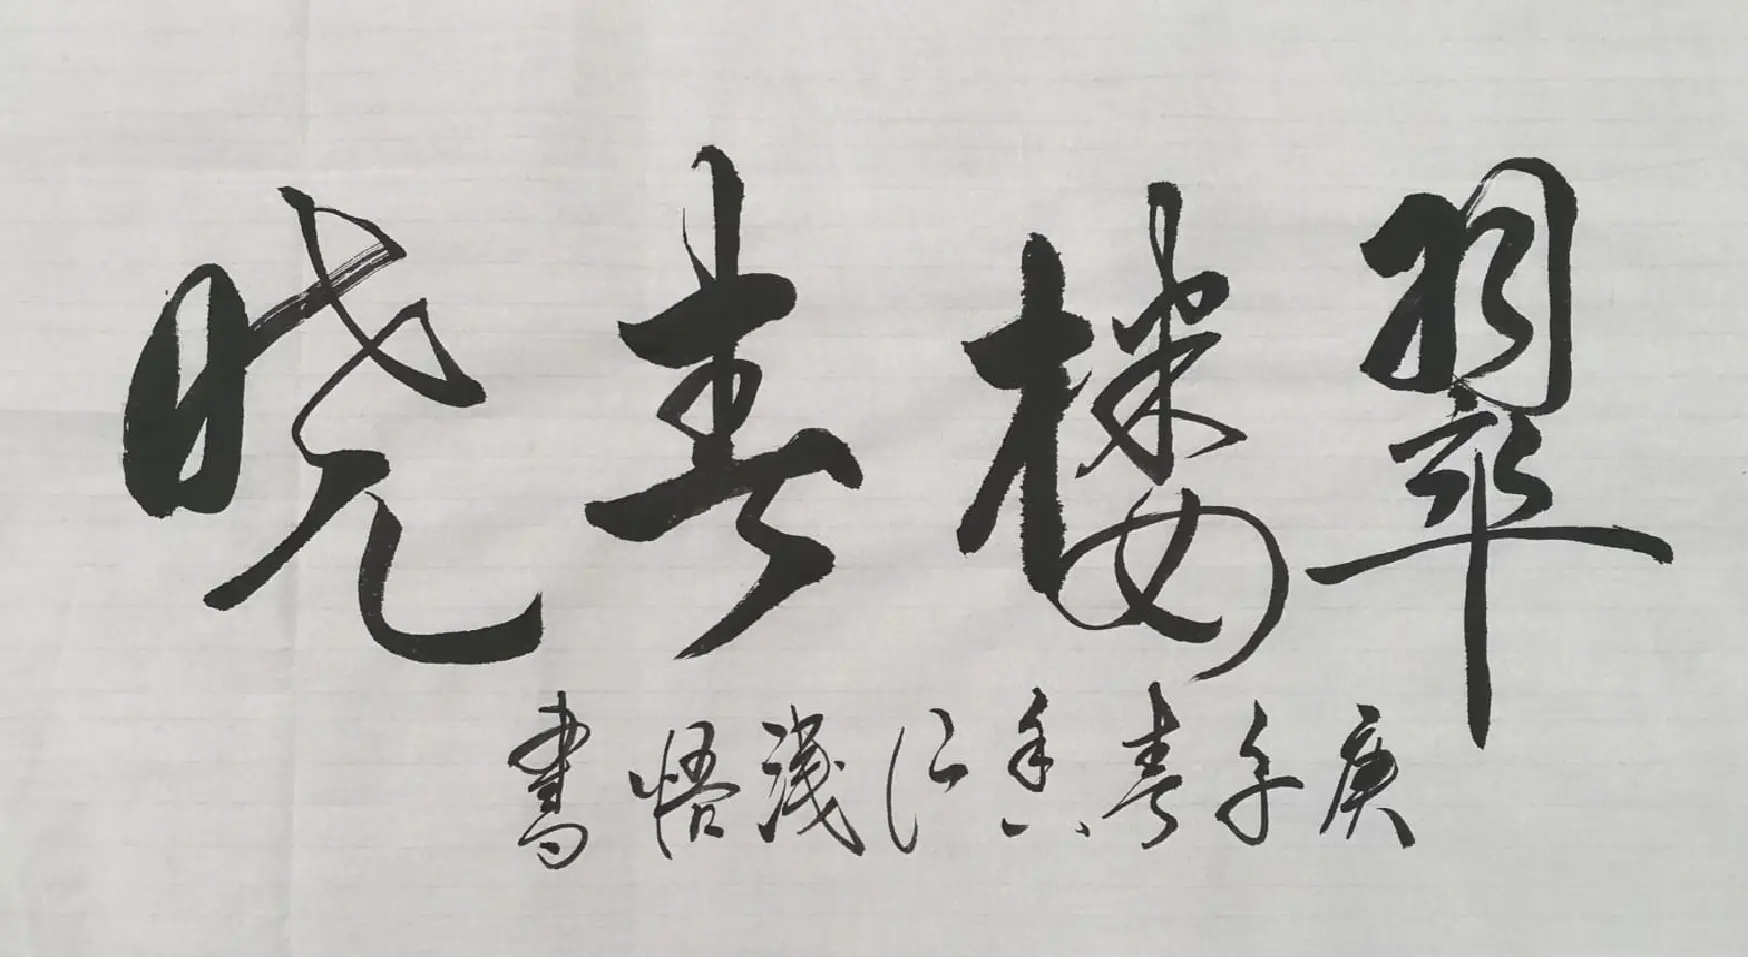 翠楼春晓
庚子春浅悟書